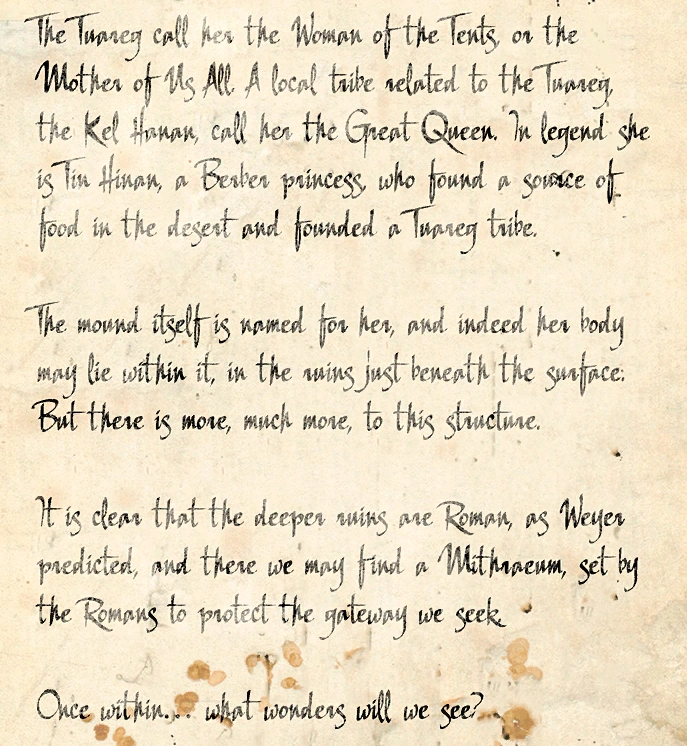 The Tuareg call her the Woman of the Tents, or the
Mother of Us All. A local tribe related to the Tuareg,
the Kel Hanan, call her the Great Queen. In legend she
is Tin Hinan, a Berber princess, who found a source of
food in the desert and founded a Tuareg tribe.
The mound itself is named for her, and indeed her body
may lie within it, in the ruins just beneath the surface.
But there is more, much more, to this structure.
It is clear that the deeper ruins are Roman, as Weyer
predicted, and there we may find a Mithraeum, set by
the Romans to protect the gateway we seek.
Once within... what wonders will we see?